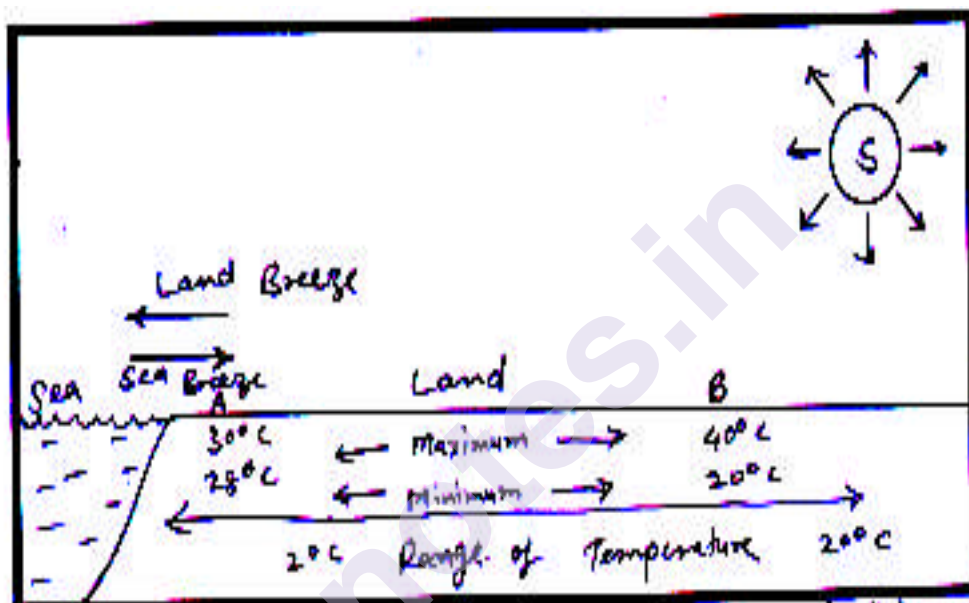 S
Land Breeze
Sea Sea Breeze Land B
A
30°C Maximum 40°C
28°C Minimum 20°C
2°C Range of Temperature 20°C
notes.in